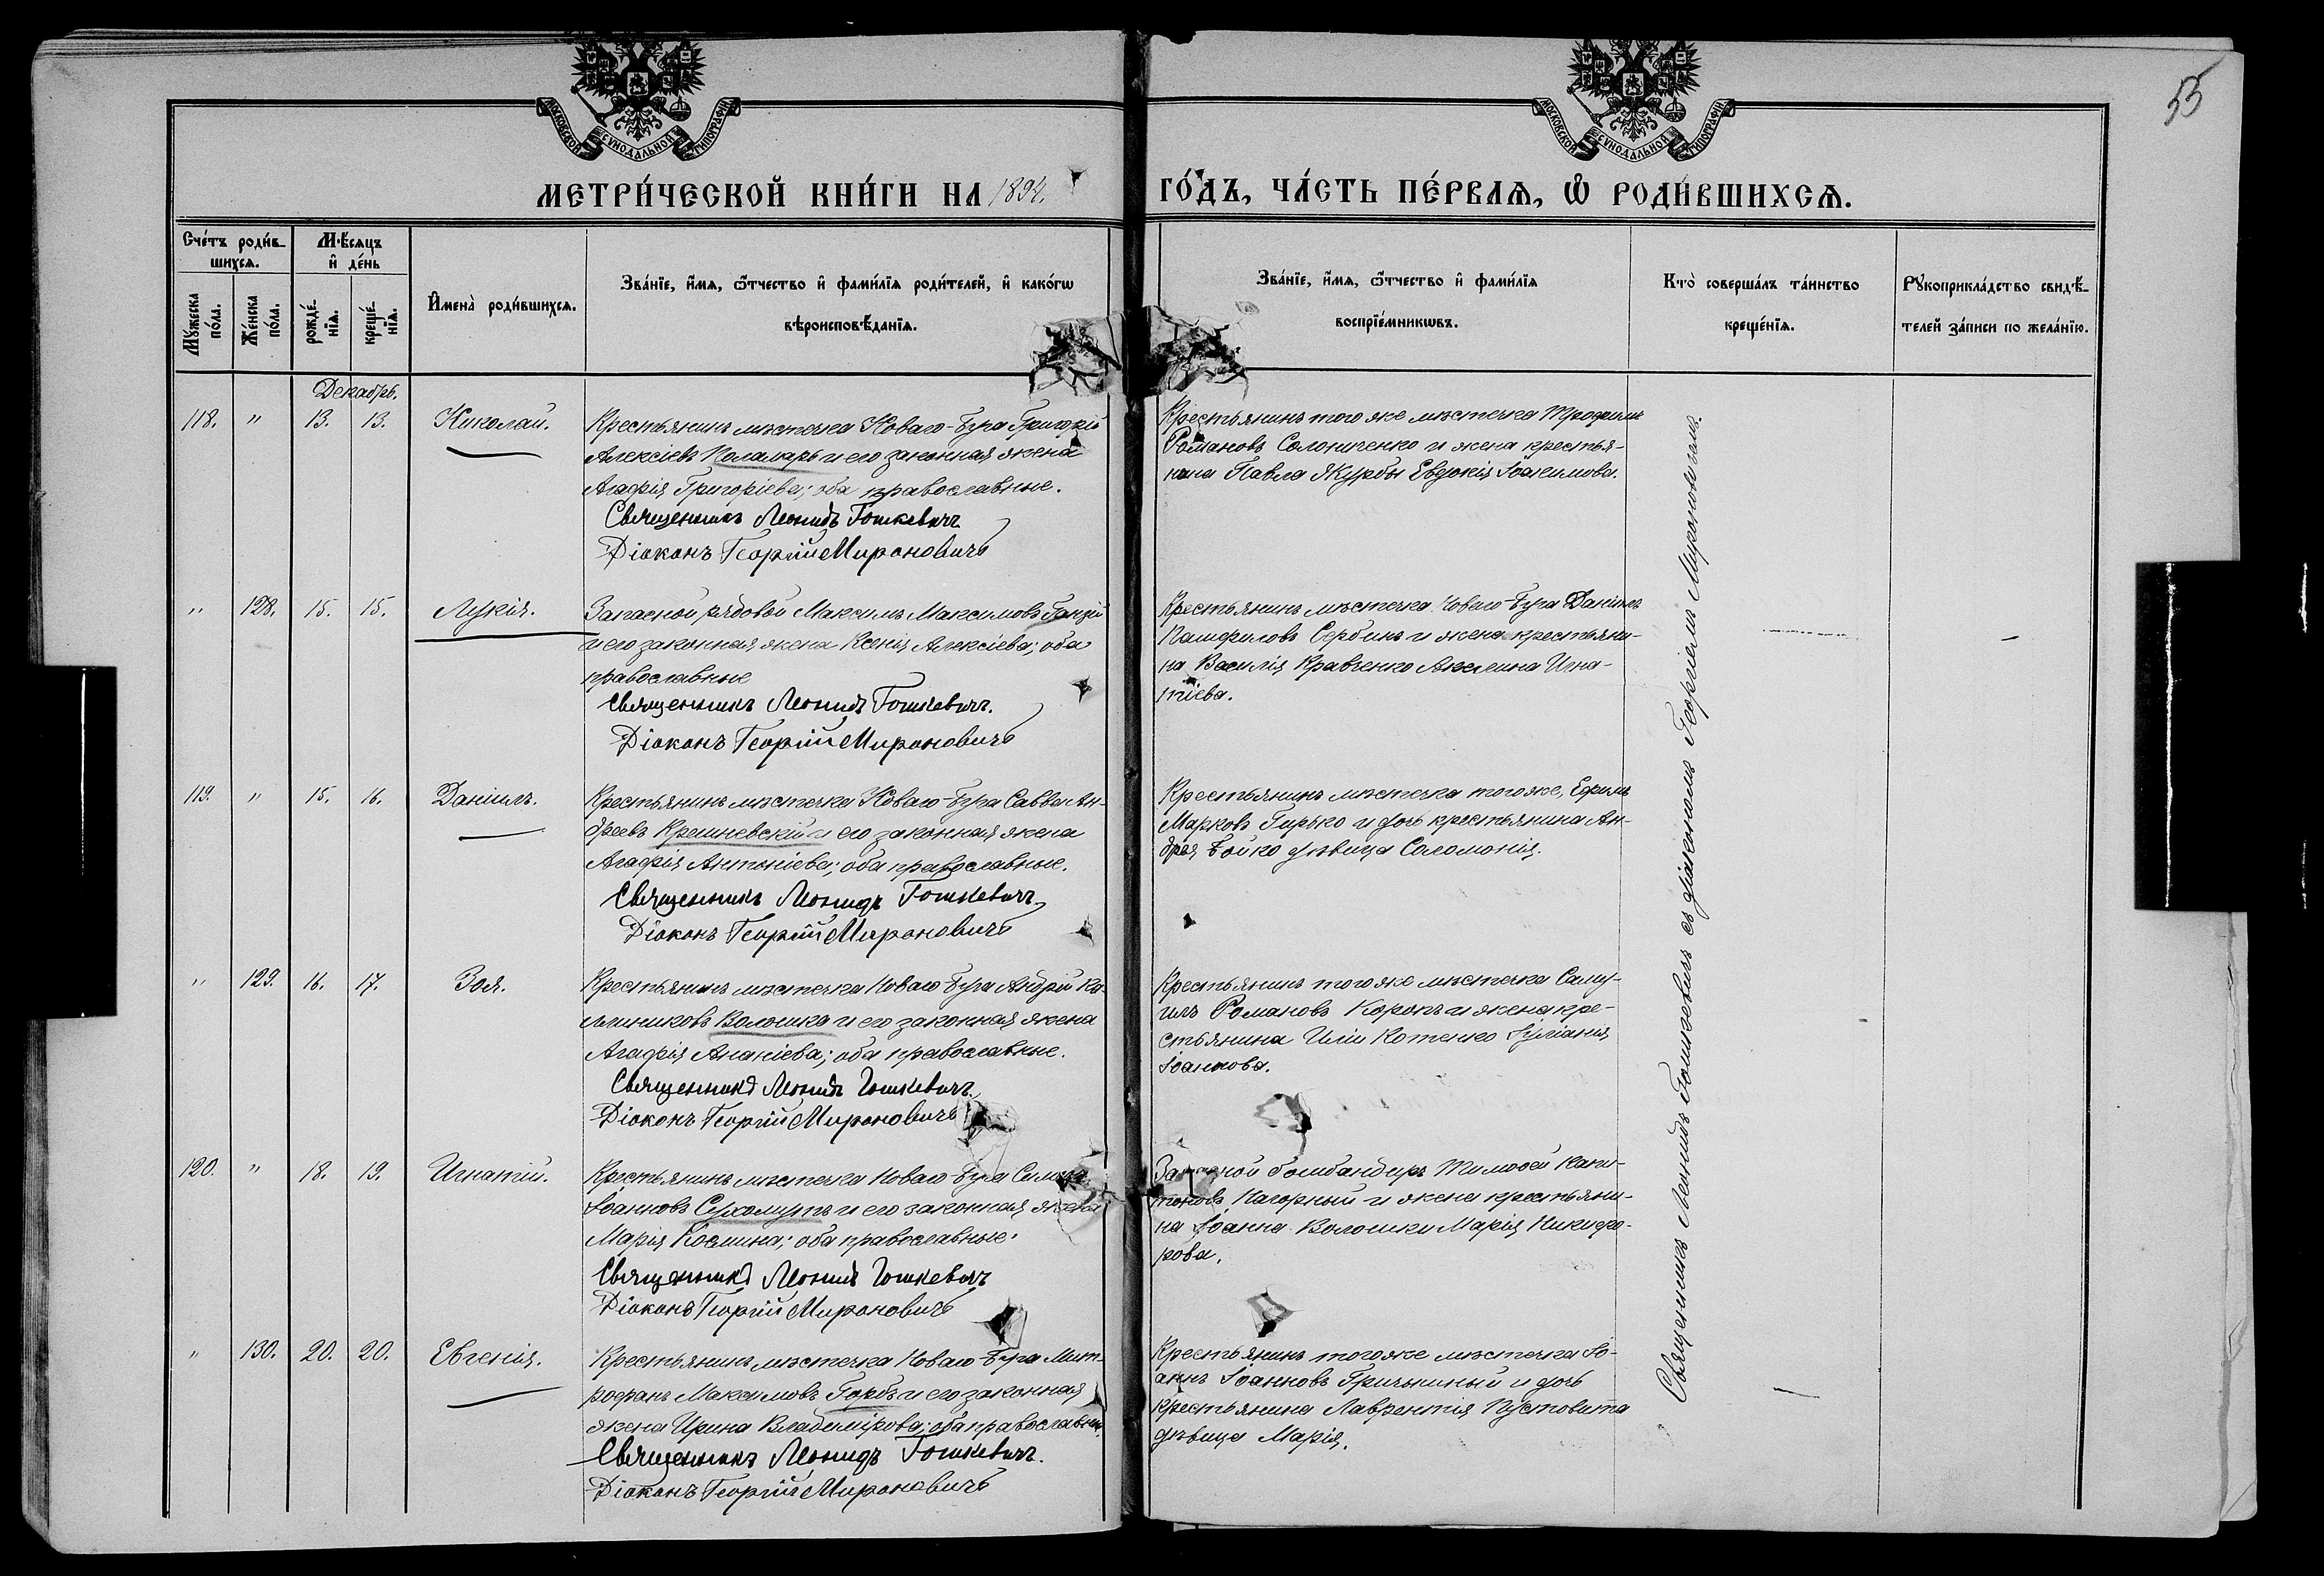 55
МОСКОВСКОЙ СѴНОДАЛЬНОЙ ТИПОГРАФІИ
МОСКОВСКОЙ СѴНОДАЛЬНОЙ ТИПОГРАФІИ
МЕТРИ́ЧЕСКОЙ КНИ́ГИ НА 1894. ГО́ДЪ, ЧА́СТЬ ПЕ́РВАѦ, Ѿ РОДИ́ВШИХСѦ.
Сче́тъ роди́в-
шихсѧ.
Мѣ́сѧцъ
и҆ де́нь
Мꙋ́жеска по́ла.
Же́нска по́ла.
рожде́-
нїѧ.
креще́-
нїѧ.
И҆мена̀ роди́вшихсѧ.
Зва́нїе, и҆́мѧ, ѻ҆́тчество и҆ фами́лїѧ роди́телей, и҆ како́гѡ
вѣроисповѣ́данїѧ.
Зва́нїе, и҆́мѧ, ѻ҆́тчество и҆ фами́лїѧ
воспрїе́мникѡвъ.
Кто̀ соверша́лъ та́инство
креще́нїѧ.
Рꙋкоприкла́дство свидѣ́-
телей за́писи по жела́нїю.
Декабрь.
118. " 13. 13. Николай.
Крестьянинъ мѣстечка Новаго-Буга Григорій
Алексіевъ Паламарь и его законная жена
Агафія Григоріева; оба православные.
Священникъ Леонидъ Гошкевичъ
Діаконъ Георгій Мироновичъ
Крестьянинъ того же мѣстечка Трофимъ
Романовъ Солониченко и жена крестья-
нина Павла Журбы Евдокія Іоакимова.
" 128. 15. 15. Лукія.
Запасной рядовой Максимъ Максимовъ Ганзій
и его законная жена Ксенія Алексіева; оба
православные
Священникъ Леонидъ Гошкевичъ.
Діаконъ Георгій Мироновичъ
Крестьянинъ мѣстечка Новаго-Буга Даніилъ
Памфиловъ Сербинъ и жена крестьяни-
на Василія Кравченко Акилина Игна-
тіева.
119. " 15. 16. Даніилъ.
Крестьянинъ мѣстечка Новаго-Буга Савва Ан-
дреевъ Кремневскій и его законная жена
Агафія Антоніева; оба православные.
Священникъ Леонидъ Гошкевичъ
Діаконъ Георгій Мироновичъ
Крестьянинъ мѣстечка того же, Ефимъ
Марковъ Гирько и дочь крестьянина Ан-
дрея Бойко дѣвица Соломонія.
" 129. 16. 17. Зоя.
Крестьянинъ мѣстечка Новаго-Буга Андрей Ка-
линиковъ Волошка и его законная жена
Агафія Ананіева; оба православные.
Священникъ Леонидъ Гошкевичъ.
Діаконъ Георгій Мироновичъ
Крестьянинъ того же мѣстечка Саму-
илъ Романовъ Коропъ и жена кре-
стьянина Иліи Котенко Іуліанія
Іоаннова.
120. " 18. 19. Игнатій.
Крестьянинъ мѣстечка Новаго-Буга
Іоанновъ Сухомутъ и его законная жена
Марія Космина; оба православные.
Священникъ Леонидъ Гошкевичъ
Діаконъ Георгій Мироновичъ
Запасной бомбандиръ Тимофей Капи-
тоновъ Нагорный и жена крестьяни-
на Іоанна Волошки Марія Никифо-
рова.
" 130. 20. 20. Евгенія.
Крестьянинъ мѣстечка Новаго-Буга Мит-
рофанъ Максимовъ Горбъ и его законная
жена Ирина Владимірова; оба православны.
Священникъ Леонидъ Гошкевичъ.
Діаконъ Георгій Мироновичъ
Крестьянинъ того же мѣстечка Іо-
аннъ Іоанновъ Гричиный и дочь
крестьянина Лаврентія Пустовита
дѣвица Марія.
Священникъ Леонидъ Гошкевичъ съ діакономъ Георгіемъ Мироновичемъ.